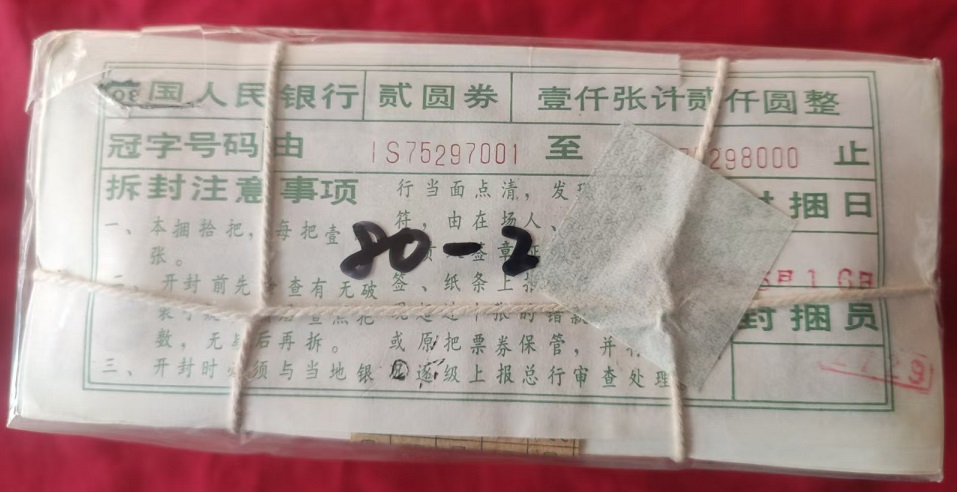 国人民银行 贰圆券 壹仟张计贰仟圆整
冠字号码由 IS75297001 至 298000 止
拆封注意事项
封捆日
一、本捆拾把，每把壹
张。
开封前先 查有无破
数，无 后再拆。
三、开封时 须与当地银
行当面点清，发
符，由在场人、
签、纸条上
张的错
或原把票券保管，并
逐级上报总行审查处理。
80-2
月16日
封捆员